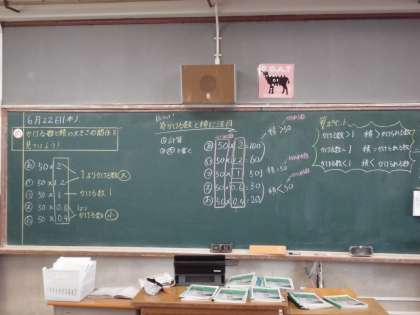 6月22日(木)
かける数と積の大きさの関係を
見つけよう!
あ 50×2
い 50×1.2
う 50×1
え 50×0.6
お 50×0.4
1より大きい数 大
かける数 1
かける数 小
かける数と積に注目
① 計算
50×2=100
50×1.2=60
50×1=50
50×0.6=30
50×0.4=20
積>50
積<50
かける数>1 積>かけられる数
かける数=1 積=かけられる数
かける数<1 積<かけられる数
GOAT